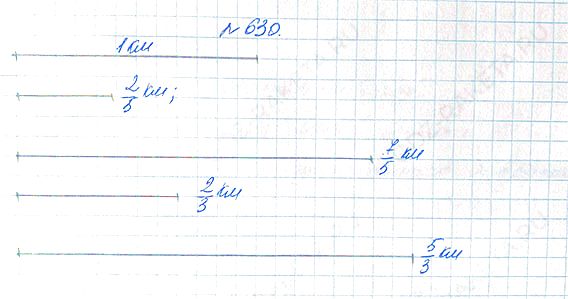 №630.
1 км
2/5 км;
7/5 км
2/3 км
5/3 км